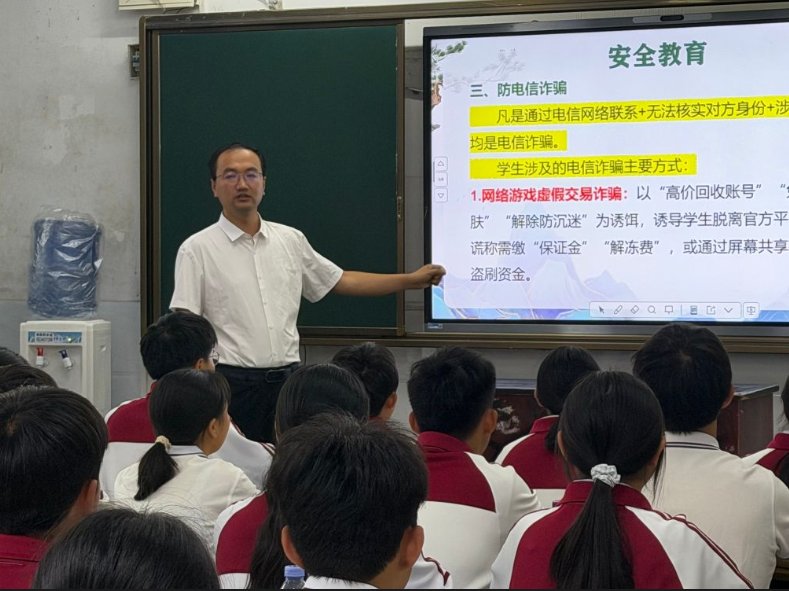 安全教育
三、防电信诈骗
凡是通过电信网络联系+无法核实对方身份+涉
均是电信诈骗。
学生涉及的电信诈骗主要方式：
1.网络游戏虚假交易诈骗：以“高价回收账号”“
肤”“解除防沉迷”为诱饵，诱导学生脱离官方平
谎称需缴“保证金”“解冻费”，或通过屏幕共享
盗刷资金。